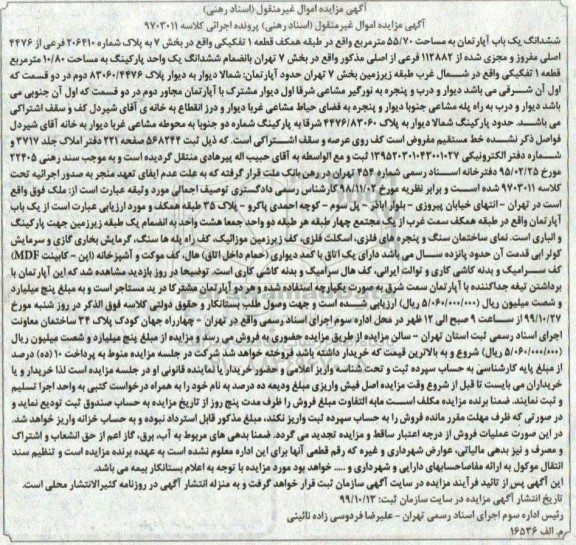 آگهی مزایده اموال غیرمنقول (اسناد رهنی)
آگهی مزایده اموال غیرمنقول (اسناد رهنی) پرونده اجرائی کلاسه ۹۷۰۳۰۱۱
ششدانگ یک باب آپارتمان به مساحت ۵۵/۷۰ مترمربع واقع در طبقه همکف قطعه ۱ تفکیکی واقع در بخش ۷ به پلاک شماره ۳۰۶۴۱۰ فرعی از ۴۴۷۶
اصلی مفروز و مجزی شده از ۱۱۲۸۸۲ فرعی از اصلی مذکور واقع در بخش ۷ تهران بانضمام ششدانگ یک واحد پارکینگ به مساحت ۱۰/۸۰ مترمربع
قطعه ۱ تفکیکی واقع در شمال غرب طبقه زیرزمین بخش ۷ تهران حدود آپارتمان: شمالا دیوار به دیوار پلاک ۸۳۰۶۰/۴۴۷۶ دوم در دو قسمت که
اول آن شرقی می باشد دیوار و درب و پنجره به نورگیر مشاعی شرقا اول دیوار مشترک با آپارتمان مجاور دوم در دو قسمت که اول آن جنوبی می
باشد دیوار و درب به راه پله مشاعی جنوبا دیوار و پنجره به فضای حیاط مشاعی غربا دیوار و درز انقطاع به خانه ی آقای شیردل کف و سقف اشتراکی
می باشد. حدود پارکینگ شمالا دیوار به پلاک ۴۴۷۶/۸۳۰۶۰ شرقا به پارکینگ شماره دو جنوبا به محوطه مشاعی غربا دیوار به خانه آقای شیردل
فواصل ذکر نشده خط مستقیم مفروض است کف روی عرصه و سقف اشتراکی است. که ذیل ثبت ۵۶۸۲۴۴ صفحه ۲۲۱ دفتر املاک جلد ۳۷۱۷ و
شماره دفتر الکترونیکی ۱۳۹۵۲۰۳۰۱۰۴۳۰۰۱۰۲۷ ثبت و مع الواسطه به آقای حبیب اله پیرهادی منتقل گردیده است و به موجب سند رهنی ۲۲۴۰۵
مورخ ۹۵/۰۲/۲۵ دفترخانه اسناد رسمی شماره ۴۵۴ تهران در رهن بانک ملت قرار گرفته که به علت عدم ایفای تعهد منجر به صدور اجرائیه تحت
کلاسه ۹۷۰۳۰۱۱ شده است و برابر نظریه مورخ ۹۸/۱۱/۰۲ کارشناس رسمی دادگستری توصیف اجمالی مورد وثیقه عبارت است از: ملک فوق واقع
است در تهران - انتهای خیابان پیروزی - بلوار اباذر - پل سوم - کوچه احمدی پاکرو - پلاک ۳۵ طبقه همکف و مورد ارزیابی عبارت است از یک باب
آپارتمان واقع در طبقه همکف سمت غرب از یک مجتمع چهار طبقه هر طبقه دو واحد جمعا هشت واحد به انضمام یک طبقه زیرزمین جهت پارکینگ
و انباری است. نمای ساختمان سنگ و پنجره های فلزی، اسکلت فلزی، کف زیرزمین موزائیک، کف راه پله ها سنگ، گرمایش بخاری گازی و سرمایش
کولر ابی قدمت آن حدود پانزده سال می باشد دارای یک اتاق با کمد دیواری (حمام داخل اتاق) هال، کف موکت و آشپزخانه (اپن - کابینت MDF)
کف سرامیک و بدنه کاشی کاری و توالت ایرانی، کف هال سرامیک و بدنه کاشی کاری است. توضیحا در روز بازدید مشاهده شد که این آپارتمان با
برداشتن تیغه جداکننده با آپارتمان سمت شرق به صورت یکپارچه استفاده شده و هر دو آپارتمان مشترکا در ید مستاجر است و به مبلغ پنج میلیارد
و شصت میلیون ریال (۵/۰۶۰/۰۰۰/۰۰۰ ریال) ارزیابی شده است و جهت وصول طلب بستانکار و حقوق دولتی کلاسه فوق الذکر در روز شنبه مورخ
۹۹/۱۰/۲۷ از ساعت ۹ صبح الی ۱۲ ظهر در محل اداره سوم اجرای اسناد رسمی واقع در تهران - چهارراه جهان کودک پلاک ۳۴ ساختمان معاونت
اجرای اسناد رسمی ثبت استان تهران - سالن مزایده از طریق مزایده حضوری به فروش می رسد و مزایده از مبلغ پنج میلیارد و شصت میلیون ریال
(۵/۰۶۰/۰۰۰/۰۰۰ ریال) شروع و به بالاترین قیمت که خریدار داشته باشد فروخته خواهد شد شرکت در جلسه مزایده منوط به پرداخت ۱۰ (ده) درصد
از مبلغ پایه کارشناسی به حساب سپرده ثبت و تحت شناسه واریز اعلامی و حضور خریدار یا نماینده قانونی او در جلسه مزایده است لذا خریدار و یا
خریداران می بایست تا قبل از شروع وقت مزایده اصل فیش واریزی مبلغ ودیعه ده درصد به نام خود را به همراه درخواست کتبی به واحد اجرا تسلیم
و ثبت نمایند. ضمنا برنده مزایده مکلف است مابه التفاوت مبلغ فروش را ظرف مدت پنج روز از تاریخ مزایده به حساب صندوق ثبت تودیع نماید و
در صورتی که ظرف مهلت مقرر مانده فروش را به حساب سپرده ثبت واریز نکند، مبلغ مذکور قابل استرداد نبوده و به حساب خزانه واریز خواهد شد.
در این صورت عملیات فروش از درجه اعتبار ساقط و مزایده تجدید می گردد. ضمنا بدهی های مربوط به آب، برق، گاز اعم از حق انشعاب و اشتراک
و مصرف و نیز بدهی مالیاتی، عوارض شهرداری و غیره که رقم قطعی آنها برای این اداره معلوم نشده است به عهده برنده مزایده است و تنظیم سند
انتقال موکول به ارائه مفاصاحسابهای دارایی و شهرداری و ..... خواهد بود مورد مزایده با توجه به اعلام بستانکار بیمه می باشد.
این آگهی پس از تائید فرآیند مزایده در سایت آگهی سازمان ثبت قرار خواهد گرفت و به منزله انتشار آگهی در روزنامه کثیرالانتشار محلی است.
تاریخ انتشار آگهی مزایده در سایت سازمان ثبت: ۹۹/۱۰/۱۳
رئیس اداره سوم اجرای اسناد رسمی تهران - علیرضا فردوسی زاده نائینی
م. الف ۱۶۵۳۶